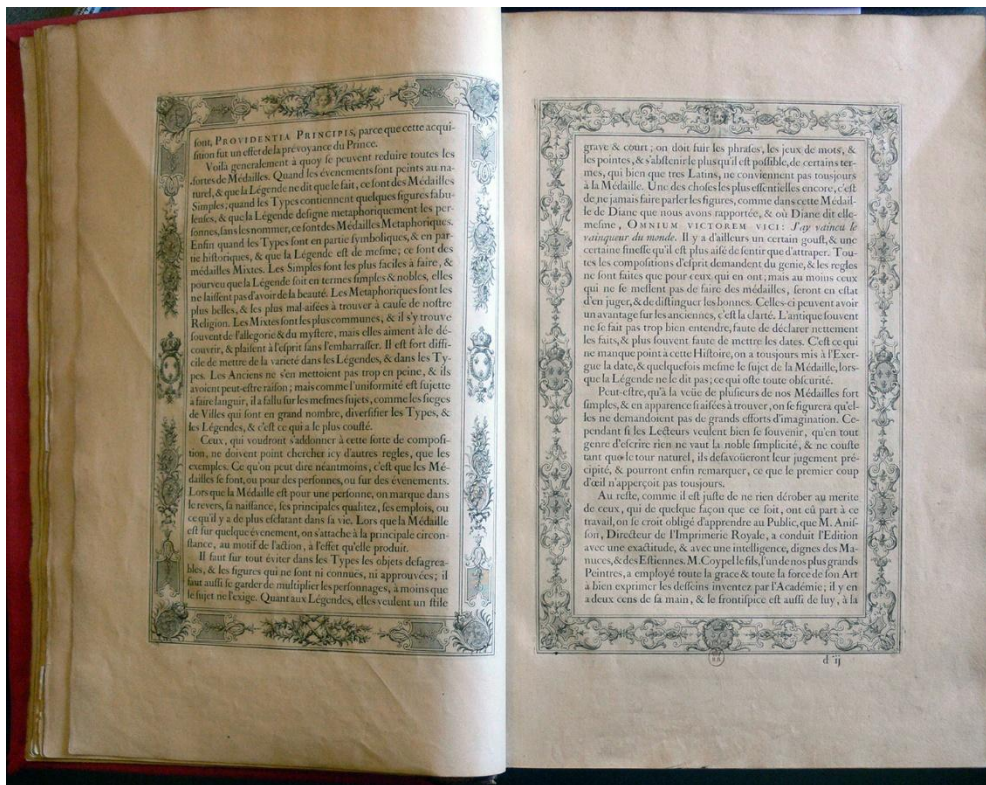 sont, PROVIDENTIA PRINCIPIS, parce que cette acqui-
sition fut un effet de la prévoyance du Prince.
Voilà generalement à quoy se peuvent reduire toutes les
sortes de Médailles. Quand les évenements sont peints au na-
turel, & que la Légende ne dit que le fait, ce sont des Médailles
Simples; quand les Types contiennent quelques figures fabu-
leuses, & que la Légende designe metaphoriquement les per-
sonnes, sans les nommer, ce sont des Médailles Metaphoriques.
Enfin quand les Types sont en partie symboliques, & en par-
tie historiques, & que la Légende est de mesme; ce sont des
médailles Mixtes. Les Simples sont les plus faciles à faire, &
pourveu que la Légende soit en termes simples & nobles, elles
ne laissent pas d'avoir de la beauté. Les Metaphoriques sont les
plus belles, & les plus mal-aisées à trouver à cause de nostre
Religion. Les Mixtes sont les plus communes, & il s'y trouve
souvent de l'allegorie & du mystere, mais elles aiment à le dé-
couvrir, & plaisent à l'esprit sans l'embarrasser. Il est fort diffi-
cile de mettre de la varieté dans les Légendes, & dans les Ty-
pes. Les Anciens ne s'en mettoient pas trop en peine, & ils
avoient peut-estre raison; mais comme l'uniformité est sujette
à faire languir, il a fallu sur les mesmes sujets, comme les sieges
de Villes qui sont en grand nombre, diversifier les Types, &
les Légendes, & c'est ce qui a le plus cousté.
Ceux, qui voudront s'addonner à cette sorte de composi-
tion, ne doivent point chercher icy d'autres regles, que les
exemples. Ce qu'on peut dire néantmoins, c'est que les Mé-
dailles se font, ou pour des personnes, ou sur des évenements.
Lors que la Médaille est pour une personne, on marque dans
le revers, sa naissance, ses principales qualitez, ses emplois, ou
ce qu'il y a de plus esclatant dans sa vie. Lors que la Médaille
est sur quelque évenement, on s'attache à la principale circon-
stance, au motif de l'action, à l'effet qu'elle produit.
Il faut sur tout éviter dans les Types les objets desagrea-
bles, & les figures qui ne sont ni connues, ni approuvées; il
faut aussi se garder de multiplier les personnages, à moins que
le sujet ne l'exige. Quant aux Légendes, elles veulent un stile
grave & court; on doit fuir les phrases, les jeux de mots, &
les pointes, & s'abstenir le plus qu'il est possible, de certains ter-
mes, qui bien que tres Latins, ne conviennent pas tousjours
à la Médaille. Une des choses les plus essentielles encore, c'est
de ne jamais faire parler les figures, comme dans cette Médail-
le de Diane que nous avons rapportée, & où Diane dit elle-
mesme, OMNIUM VICTOREM VICI: J'ay vaincu le
vainqueur du monde. Il y a d'ailleurs un certain goust, & une
certaine finesse qu'il est plus aisé de sentir que d'attraper. Tou-
tes les compositions d'esprit demandent du genie, & les regles
ne sont faites que pour ceux qui en ont; mais au moins ceux
qui ne se meslent pas de faire des médailles, seront en estat
d'en juger, & de distinguer les bonnes. Celles-ci peuvent avoir
un avantage sur les anciennes, c'est la clarté. L'antique souvent
ne se fait pas trop bien entendre, faute de déclarer nettement
les faits, & plus souvent faute de mettre les dates. C'est ce qui
ne manque point à cette Histoire, on a tousjours mis à l'Exer-
gue la date, & quelquefois mesme le sujet de la Médaille, lors-
que la Légende ne le dit pas; ce qui oste toute obscurité.
Peut-estre, qu'à la veûe de plusieurs de nos Médailles fort
simples, & en apparence si aisées à trouver, on se figurera qu'el-
les ne demandoient pas de grands efforts d'imagination. Ce-
pendant si les Lecteurs veulent bien se souvenir, qu'en tout
genre d'escrire rien ne vaut la noble simplicité, & ne couste
tant que le tour naturel, ils desavoüeront leur jugement pré-
cipité, & pourront enfin remarquer, ce que le premier coup
d'œil n'apperçoit pas tousjours.
Au reste, comme il est juste de ne rien dérober au merite
de ceux, qui de quelque façon que ce soit, ont eû part à ce
travail, on se croit obligé d'apprendre au Public, que M. Anis-
son, Directeur de l'Imprimerie Royale, a conduit l'Edition
avec une exactitude, & avec une intelligence, dignes des Ma-
nuces, & des Estiennes. M. Coypel le fils, l'un de nos plus grands
Peintres, a employé toute la grace & toute la force de son Art
à bien exprimer les desseins inventez par l'Académie; il y en
a deux cens de sa main, & le frontispice est aussi de luy, à la
d ij